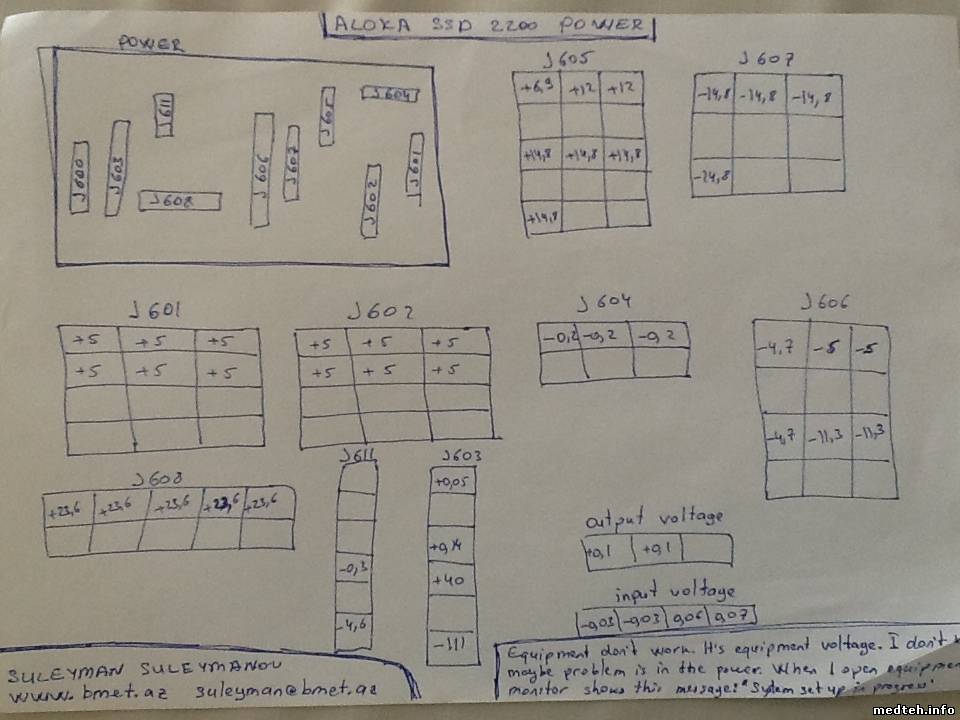 ALOKA SSD 2200 POWER
POWER
J611
J604
J605
J600
J603
J606
J607
J601
J602
J608
J605
+6,9 +12 +12
+14,8 +14,8 +14,8
+14,8
J607
-14,8 -14,8 -14,8
-14,8
J601
+5 +5 +5
+5 +5 +5
J602
+5 +5 +5
+5 +5 +5
J604
-0,2 -0,2 -0,2
J606
-4,7 -5 -5
-4,7 -11,3 -11,3
J608
+23,6 +23,6 +23,6 +23,6 +23,6
J611
-0,3
-4,6
J603
+0,05
+0,14
+40
-111
output voltage
+0,1 +0,1
input voltage
-0,03 -0,03 0,06 0,07
SULEYMAN SULEYMANOV
www.bmet.az suleyman@bmet.az
Equipment don't work. It's equipment voltage. I don't
maybe problem is in the power. When I open equipmen
monitor shows this message: "System set up in progress"
medteh.info